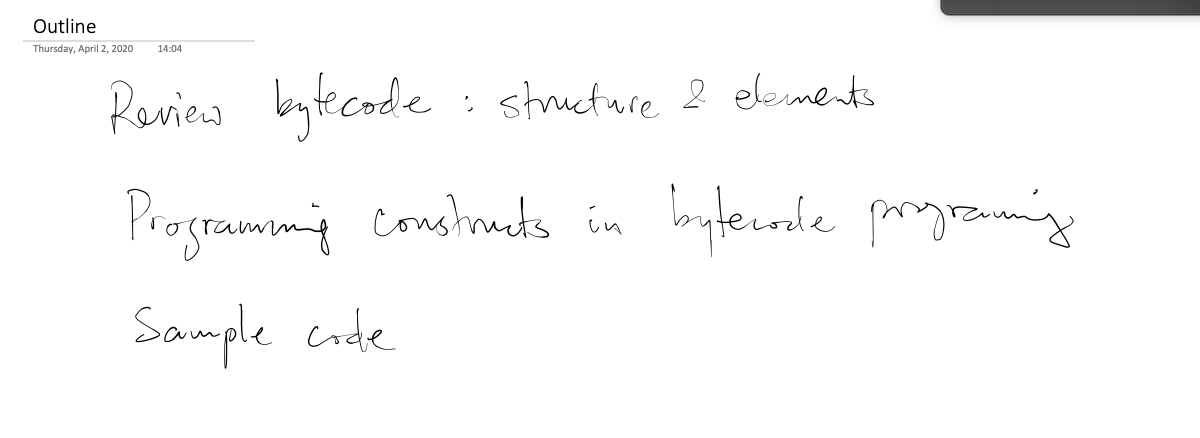 Outline
Thursday, April 2, 2020 14:04
Review bytecode : structure & elements
Programming constructs in bytecode programing
Sample code